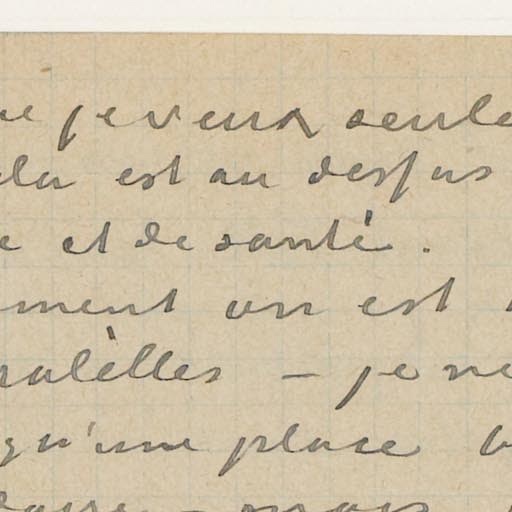 je veux seule
est au dessus
et de santé.
ment on est
ralèlles — je ne
qu'une place